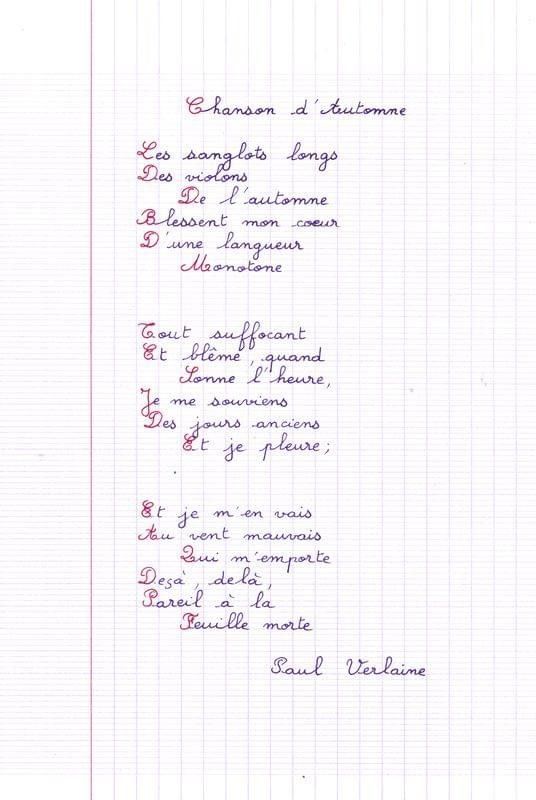 Chanson d'Automne
Les sanglots longs
Des violons
De l'automne
Blessent mon coeur
D'une langueur
Monotone
Tout suffocant
Et blême, quand
Sonne l'heure,
Je me souviens
Des jours anciens
Et je pleure;
Et je m'en vais
Au vent mauvais
Qui m'emporte
Deçà, delà,
Pareil à la
Feuille morte
Paul Verlaine